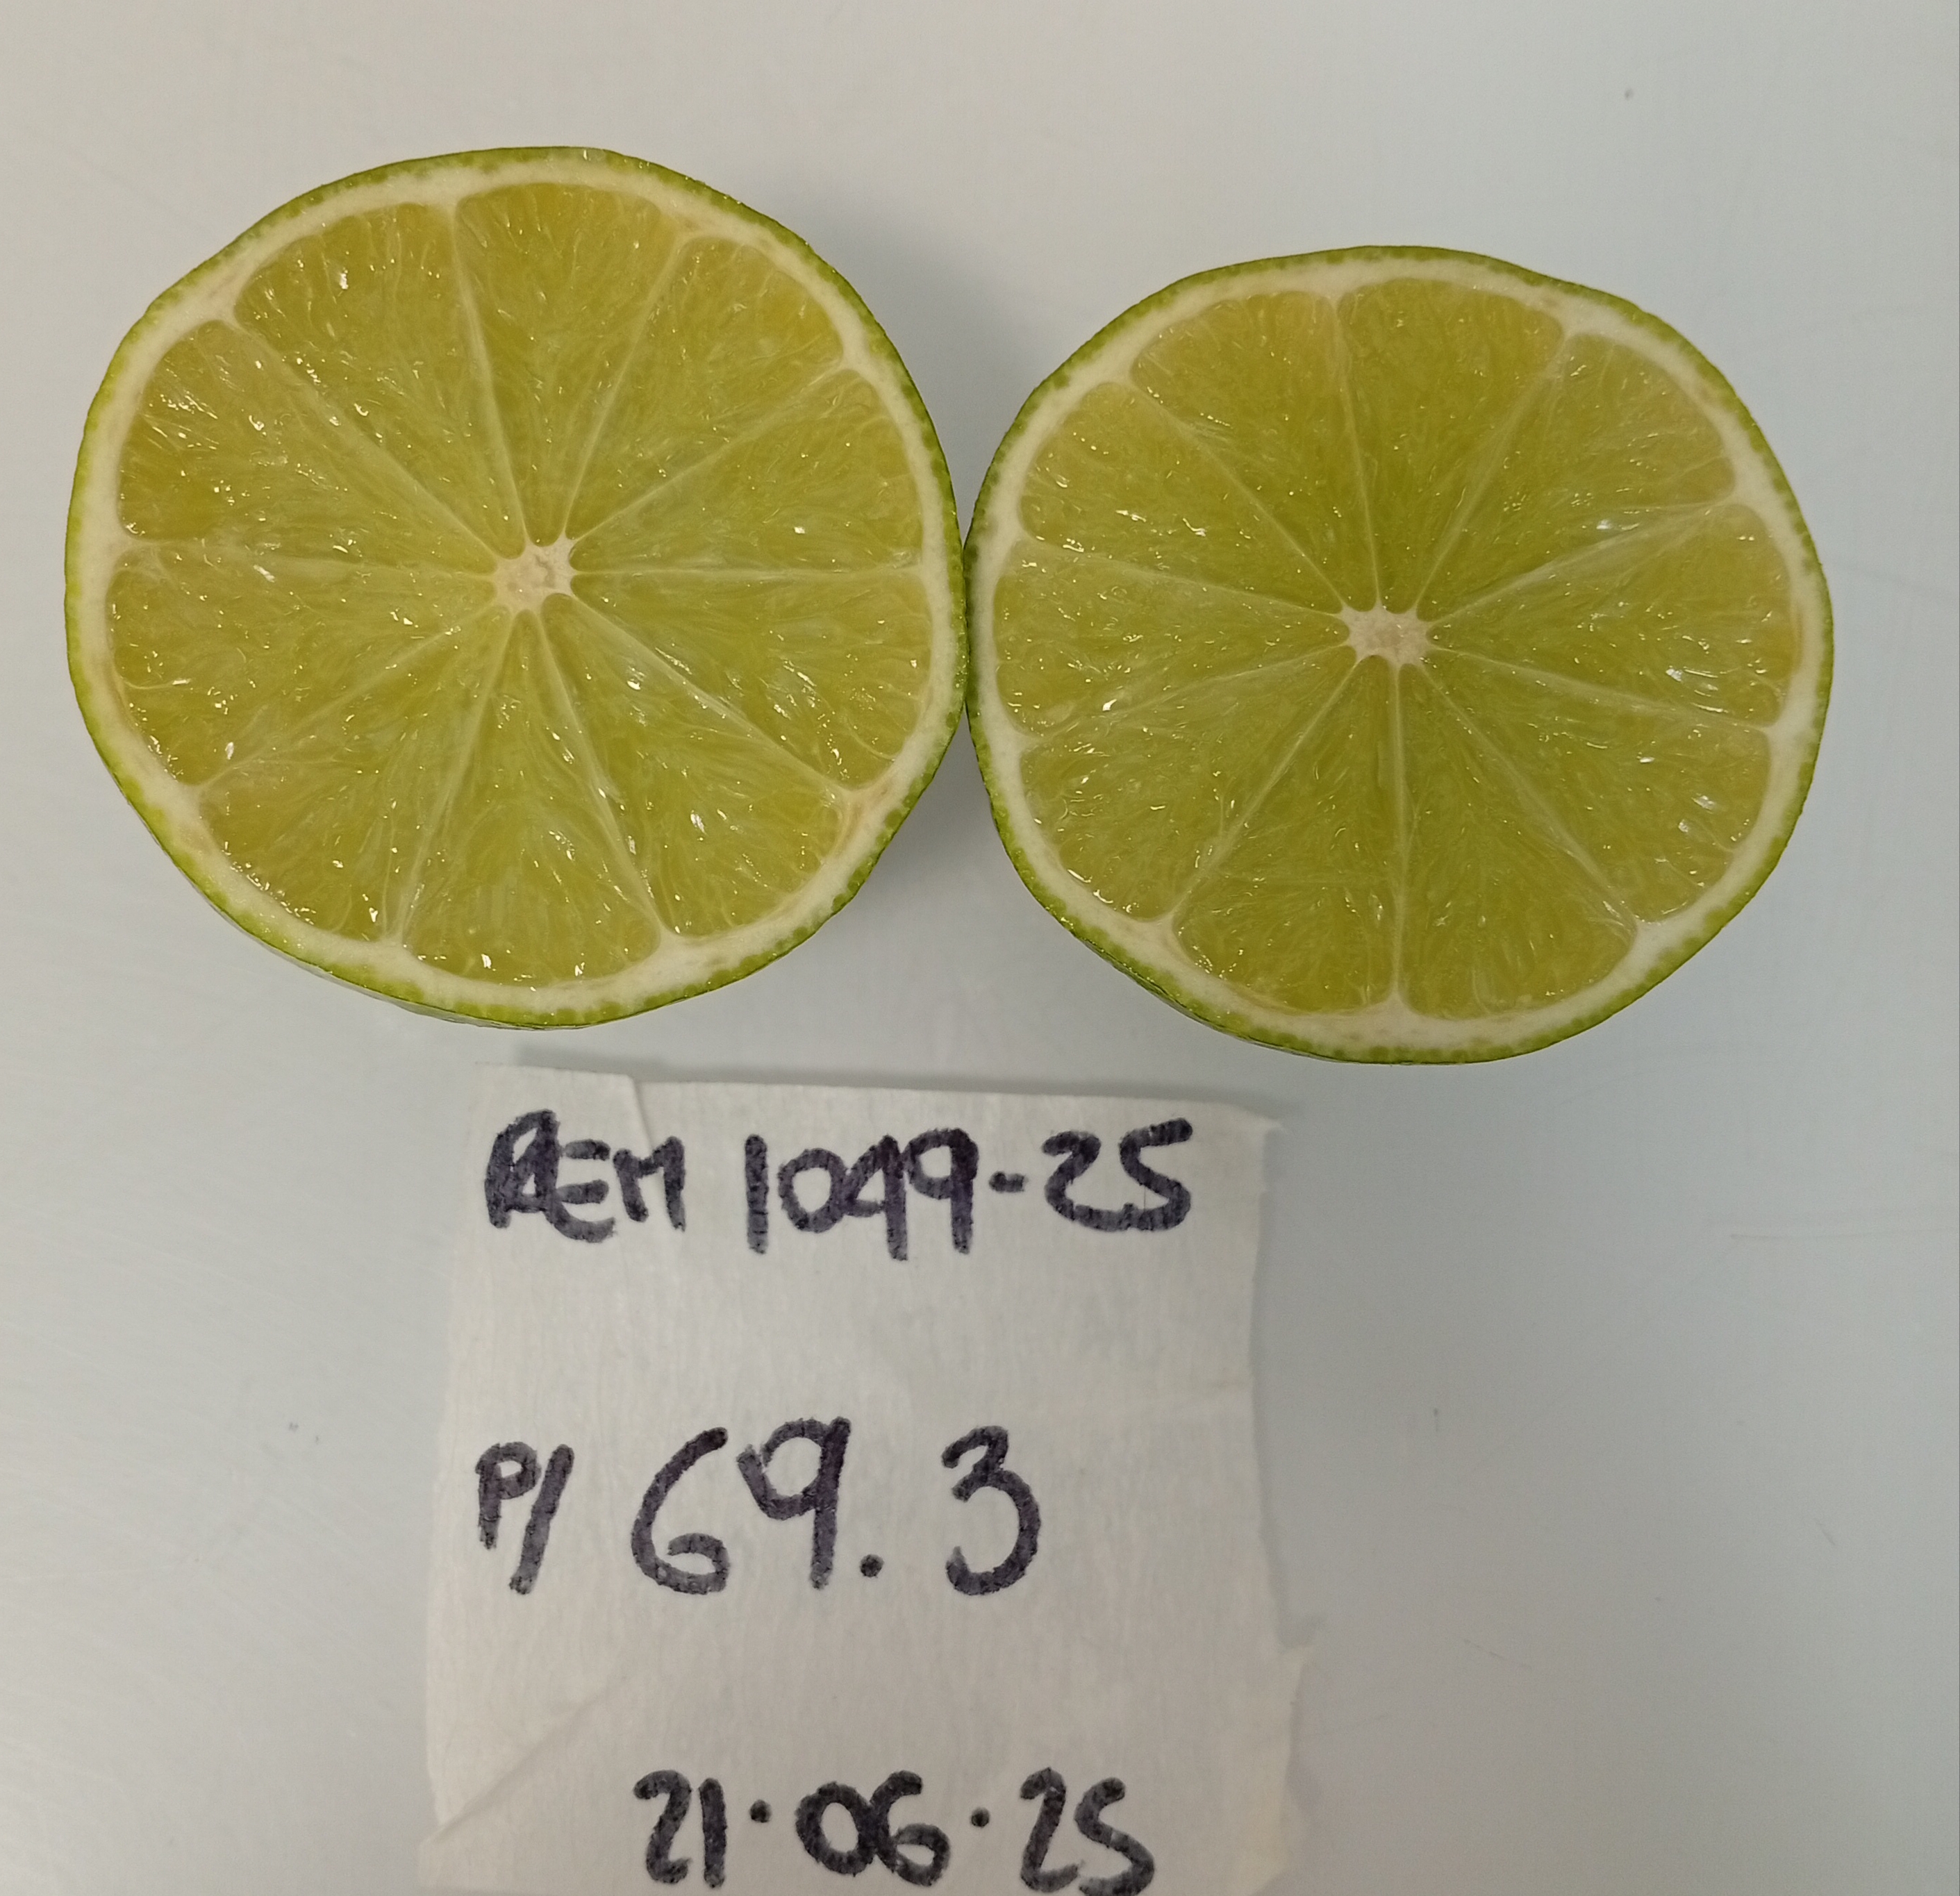 REM 1049-25
P/ 69.3
21.06.25